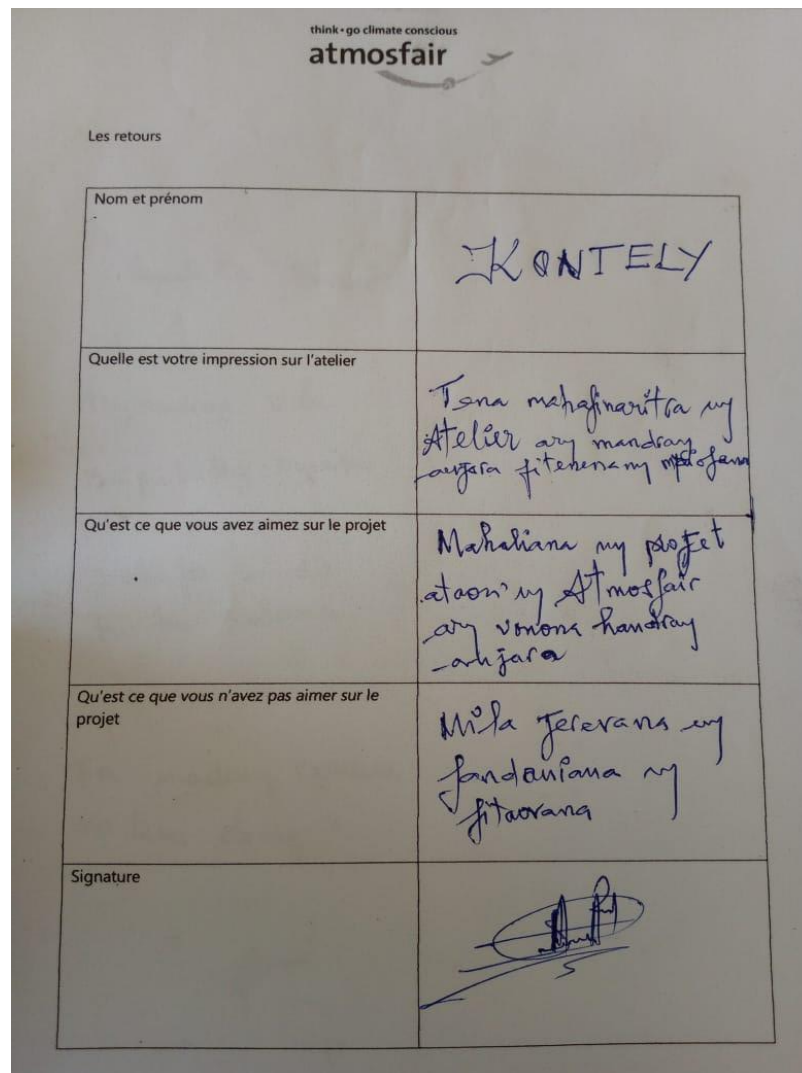 think • go climate conscious
atmosfair
Les retours
Nom et prénom
KONTELY
Quelle est votre impression sur l'atelier
Tena mahafinaritra ny
Atelier ary mandray
anjara fitenenana ny
Qu'est ce que vous avez aimez sur le projet
Mahaliana ny projet
ataon' ny Atmosfair
ary vonona handray
anjara
Qu'est ce que vous n'avez pas aimer sur le
projet
Mila jerevana ny
fandaniana ny
fitaovana
Signature